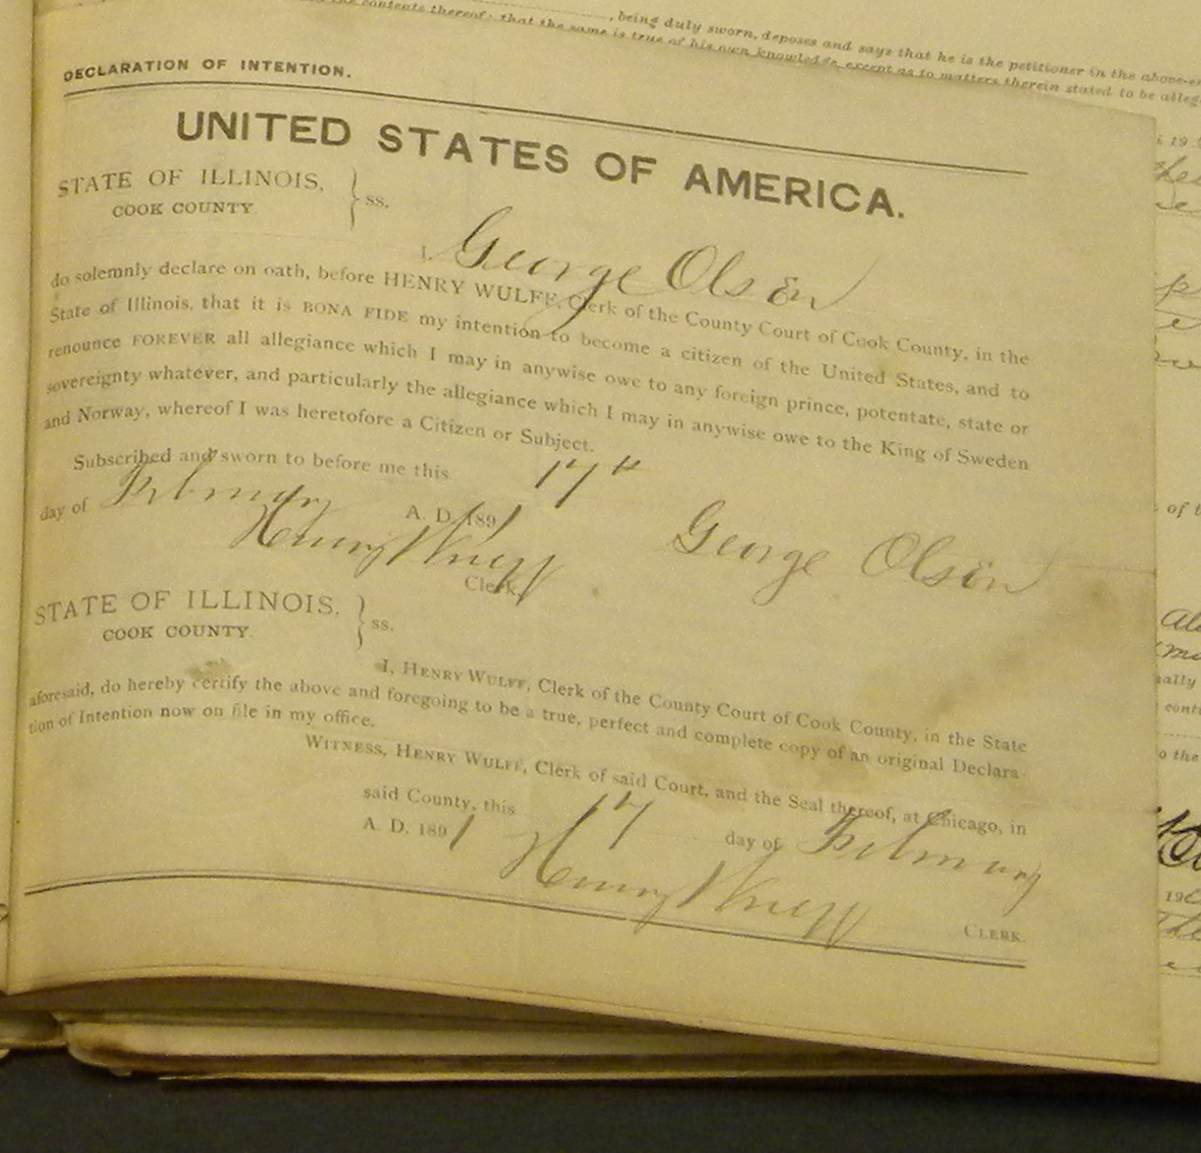 , being duly sworn, deposes and says that he is the petitioner in the above-en
the contents thereof; that the same is true of his own knowledge, except as to matters therein stated to be alleg
DECLARATION OF INTENTION.
UNITED STATES OF AMERICA.
STATE OF ILLINOIS,
COOK COUNTY
ss.
I, George Olson
do solemnly declare on oath, before HENRY WULFF, Clerk of the County Court of Cook County, in the
State of Illinois, that it is BONA FIDE my intention to become a citizen of the United States, and to
renounce FOREVER all allegiance which I may in anywise owe to any foreign prince, potentate, state or
sovereignty whatever, and particularly the allegiance which I may in anywise owe to the King of Sweden
and Norway, whereof I was heretofore a Citizen or Subject.
Subscribed and sworn to before me this 17th
day of February A. D. 1891
Henry Wulff
Clerk.
George Olson
STATE OF ILLINOIS,
COOK COUNTY.
ss.
I, HENRY WULFF, Clerk of the County Court of Cook County, in the State
aforesaid, do hereby certify the above and foregoing to be a true, perfect and complete copy of an original Declara-
tion of Intention now on file in my office.
WITNESS, HENRY WULFF, Clerk of said Court, and the Seal thereof, at Chicago, in
said County, this 17 day of February
A. D. 1891
Henry Wulff
CLERK.
19
of t
ally
conte
o the
190